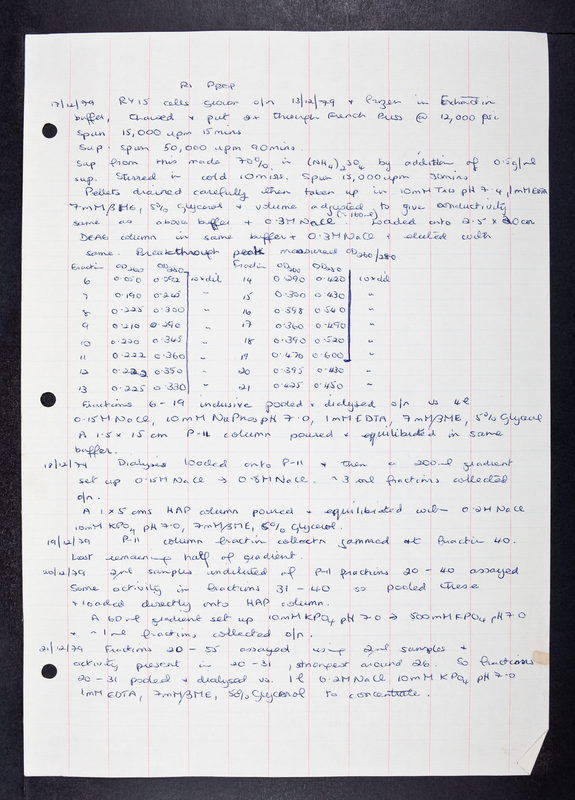 RI PREP
17/12/79 RY15 cells grown o/n 13/12/79 + frozen in Extraction
buffer, thawed + put 2x through French Press @ 12,000 psi
Spun 15,000 rpm 15 mins
Sup. spun 50,000 rpm 90 mins.
Sup from this made 70% in (NH4)2SO4 by addition of 0.5g/ml
sup. Stirred in cold 10 mins. Spun 15,000 rpm 30 mins
Pellets drained carefully then taken up in 10mM Tris pH 7.4, 1mM EDTA
7mM βME, 5% Glycerol + volume adjusted to give conductivity
same as above buffer + 0.3M NaCl. (~160ml) Loaded onto 2.5 x 30cm
DEAE column in same buffer + 0.3M NaCl + eluted with
same. Breakthrough peak measured OD260/280
Fraction OD260 OD280 Fraction OD260 OD280
6 0.050 0.092 10x dil 14 0.290 0.420 10x dil
7 0.190 0.242 " 15 0.320 0.430 "
8 0.225 0.300 " 16 0.398 0.540 "
9 0.210 0.290 " 17 0.360 0.490 "
10 0.220 0.345 " 18 0.390 0.520 "
11 0.222 0.360 " 19 0.470 0.600 "
12 0.222 0.350 " 20 0.395 0.430 "
13 0.225 0.330 " 21 0.425 0.450 "
Fractions 6-19 inclusive pooled + dialysed o/n vs 4l
0.15M NaCl, 10mM NaPhos pH 7.0, 1mM EDTA, 7mM βME, 5% Glycerol
A 1.5 x 15 cm P-11 column poured + equilibrated in same
buffer.
18/12/79 Dialysis loaded onto P-11 + then a 200ml gradient
set up 0.15M NaCl → 0.8M NaCl. ~3ml fractions collected
o/n.
A 1 x 5 cms HAP column poured + equilibrated with 0.2M NaCl
10mM KPO4 pH 7.0, 7mM βME, 5% Glycerol.
19/12/79 P-11 column fraction collector jammed at fraction 40.
Lost remaining half of gradient.
20/12/79 2ml samples undiluted of P-11 fractions 20-40 assayed
Some activity in fractions 31-40 so pooled these
+ loaded directly onto HAP column.
A 60ml gradient set up 10mM KPO4 pH 7.0 → 500mM KPO4 pH 7.0
+ ~1ml fractions collected o/n.
21/12/79 Fractions 20-55 assayed using 2ml samples +
activity present in 20-31, strongest around 26. So fractions
20-31 pooled + dialysed vs. 1l 0.2M NaCl 10mM KPO4 pH 7.0
1mM EDTA, 7mM βME, 50% Glycerol to concentrate.